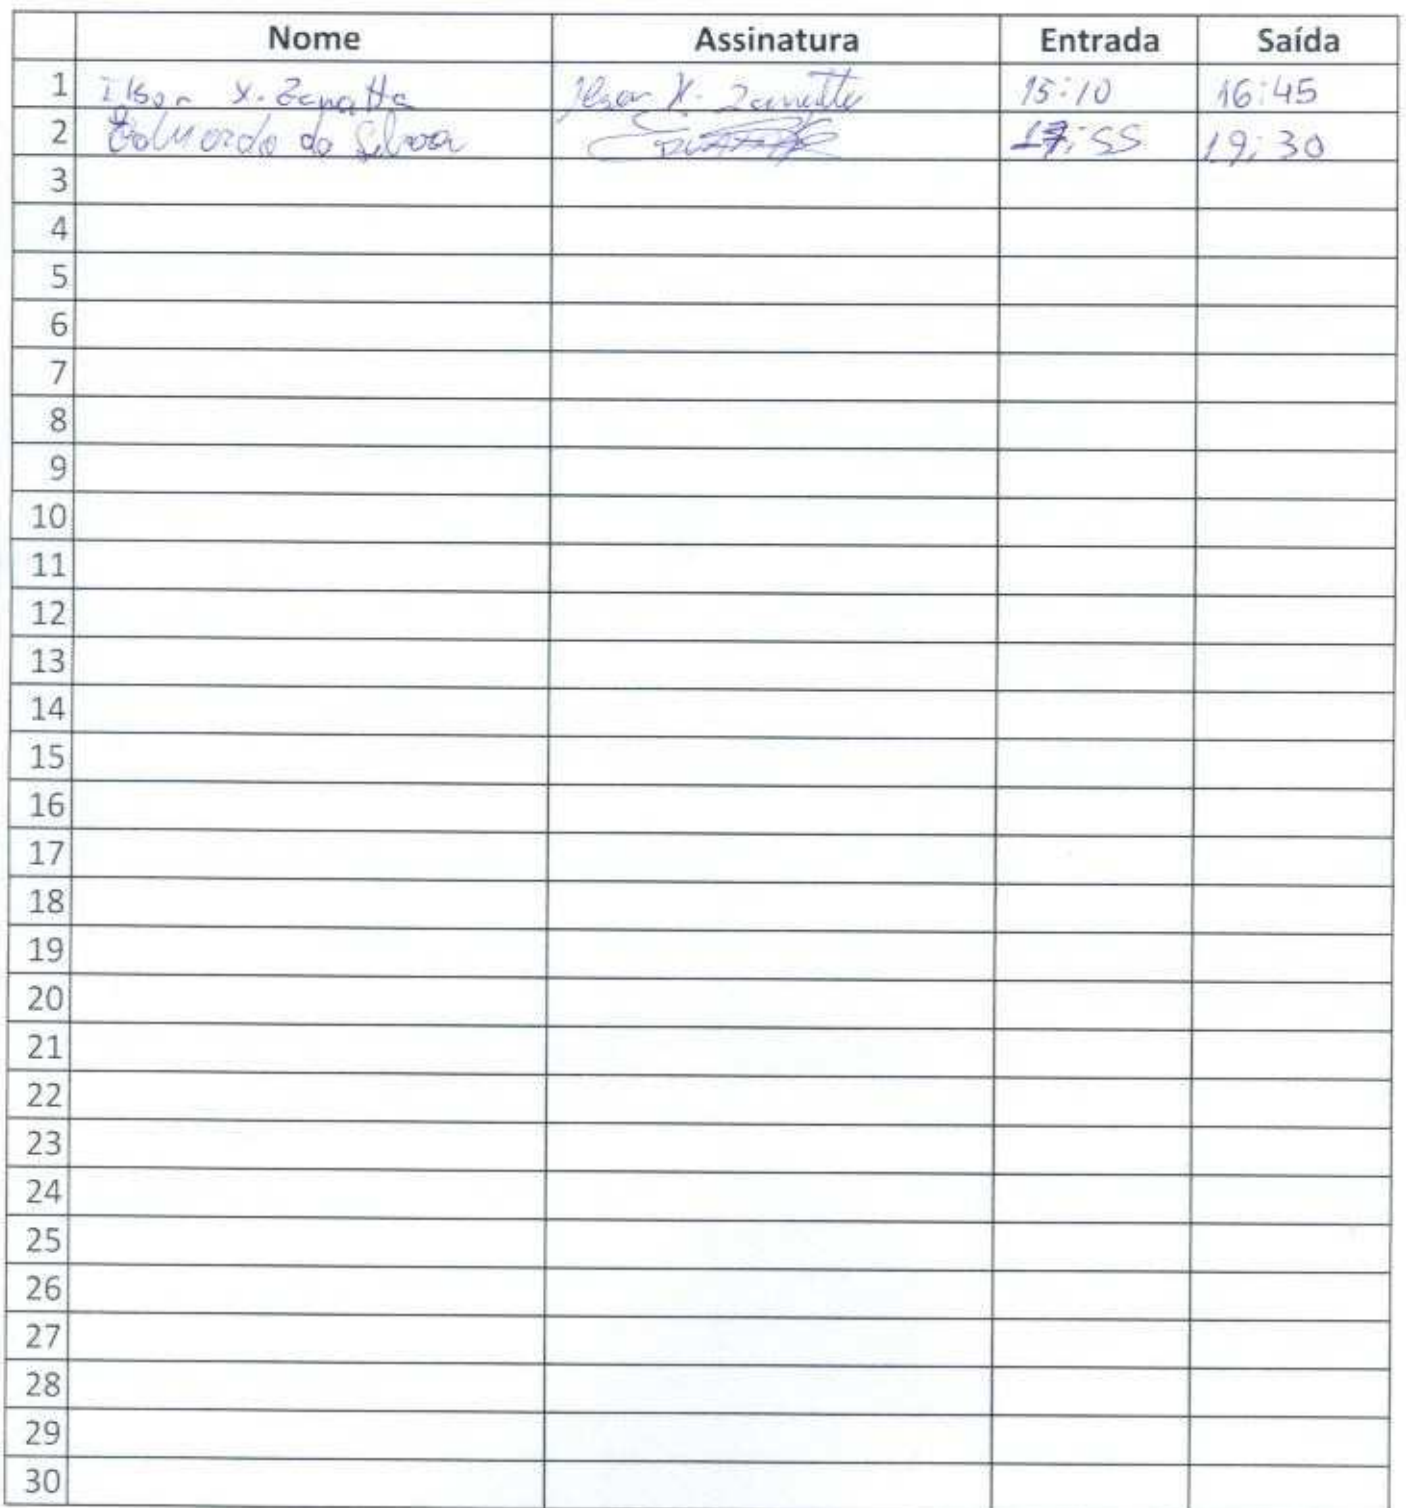 Nome Assinatura Entrada Saída
1 Ilson X. Zanatta Ilson X. Zanatta 15:10 16:45
2 Eduardo da Silva 17:55 19:30
3
4
5
6
7
8
9
10
11
12
13
14
15
16
17
18
19
20
21
22
23
24
25
26
27
28
29
30